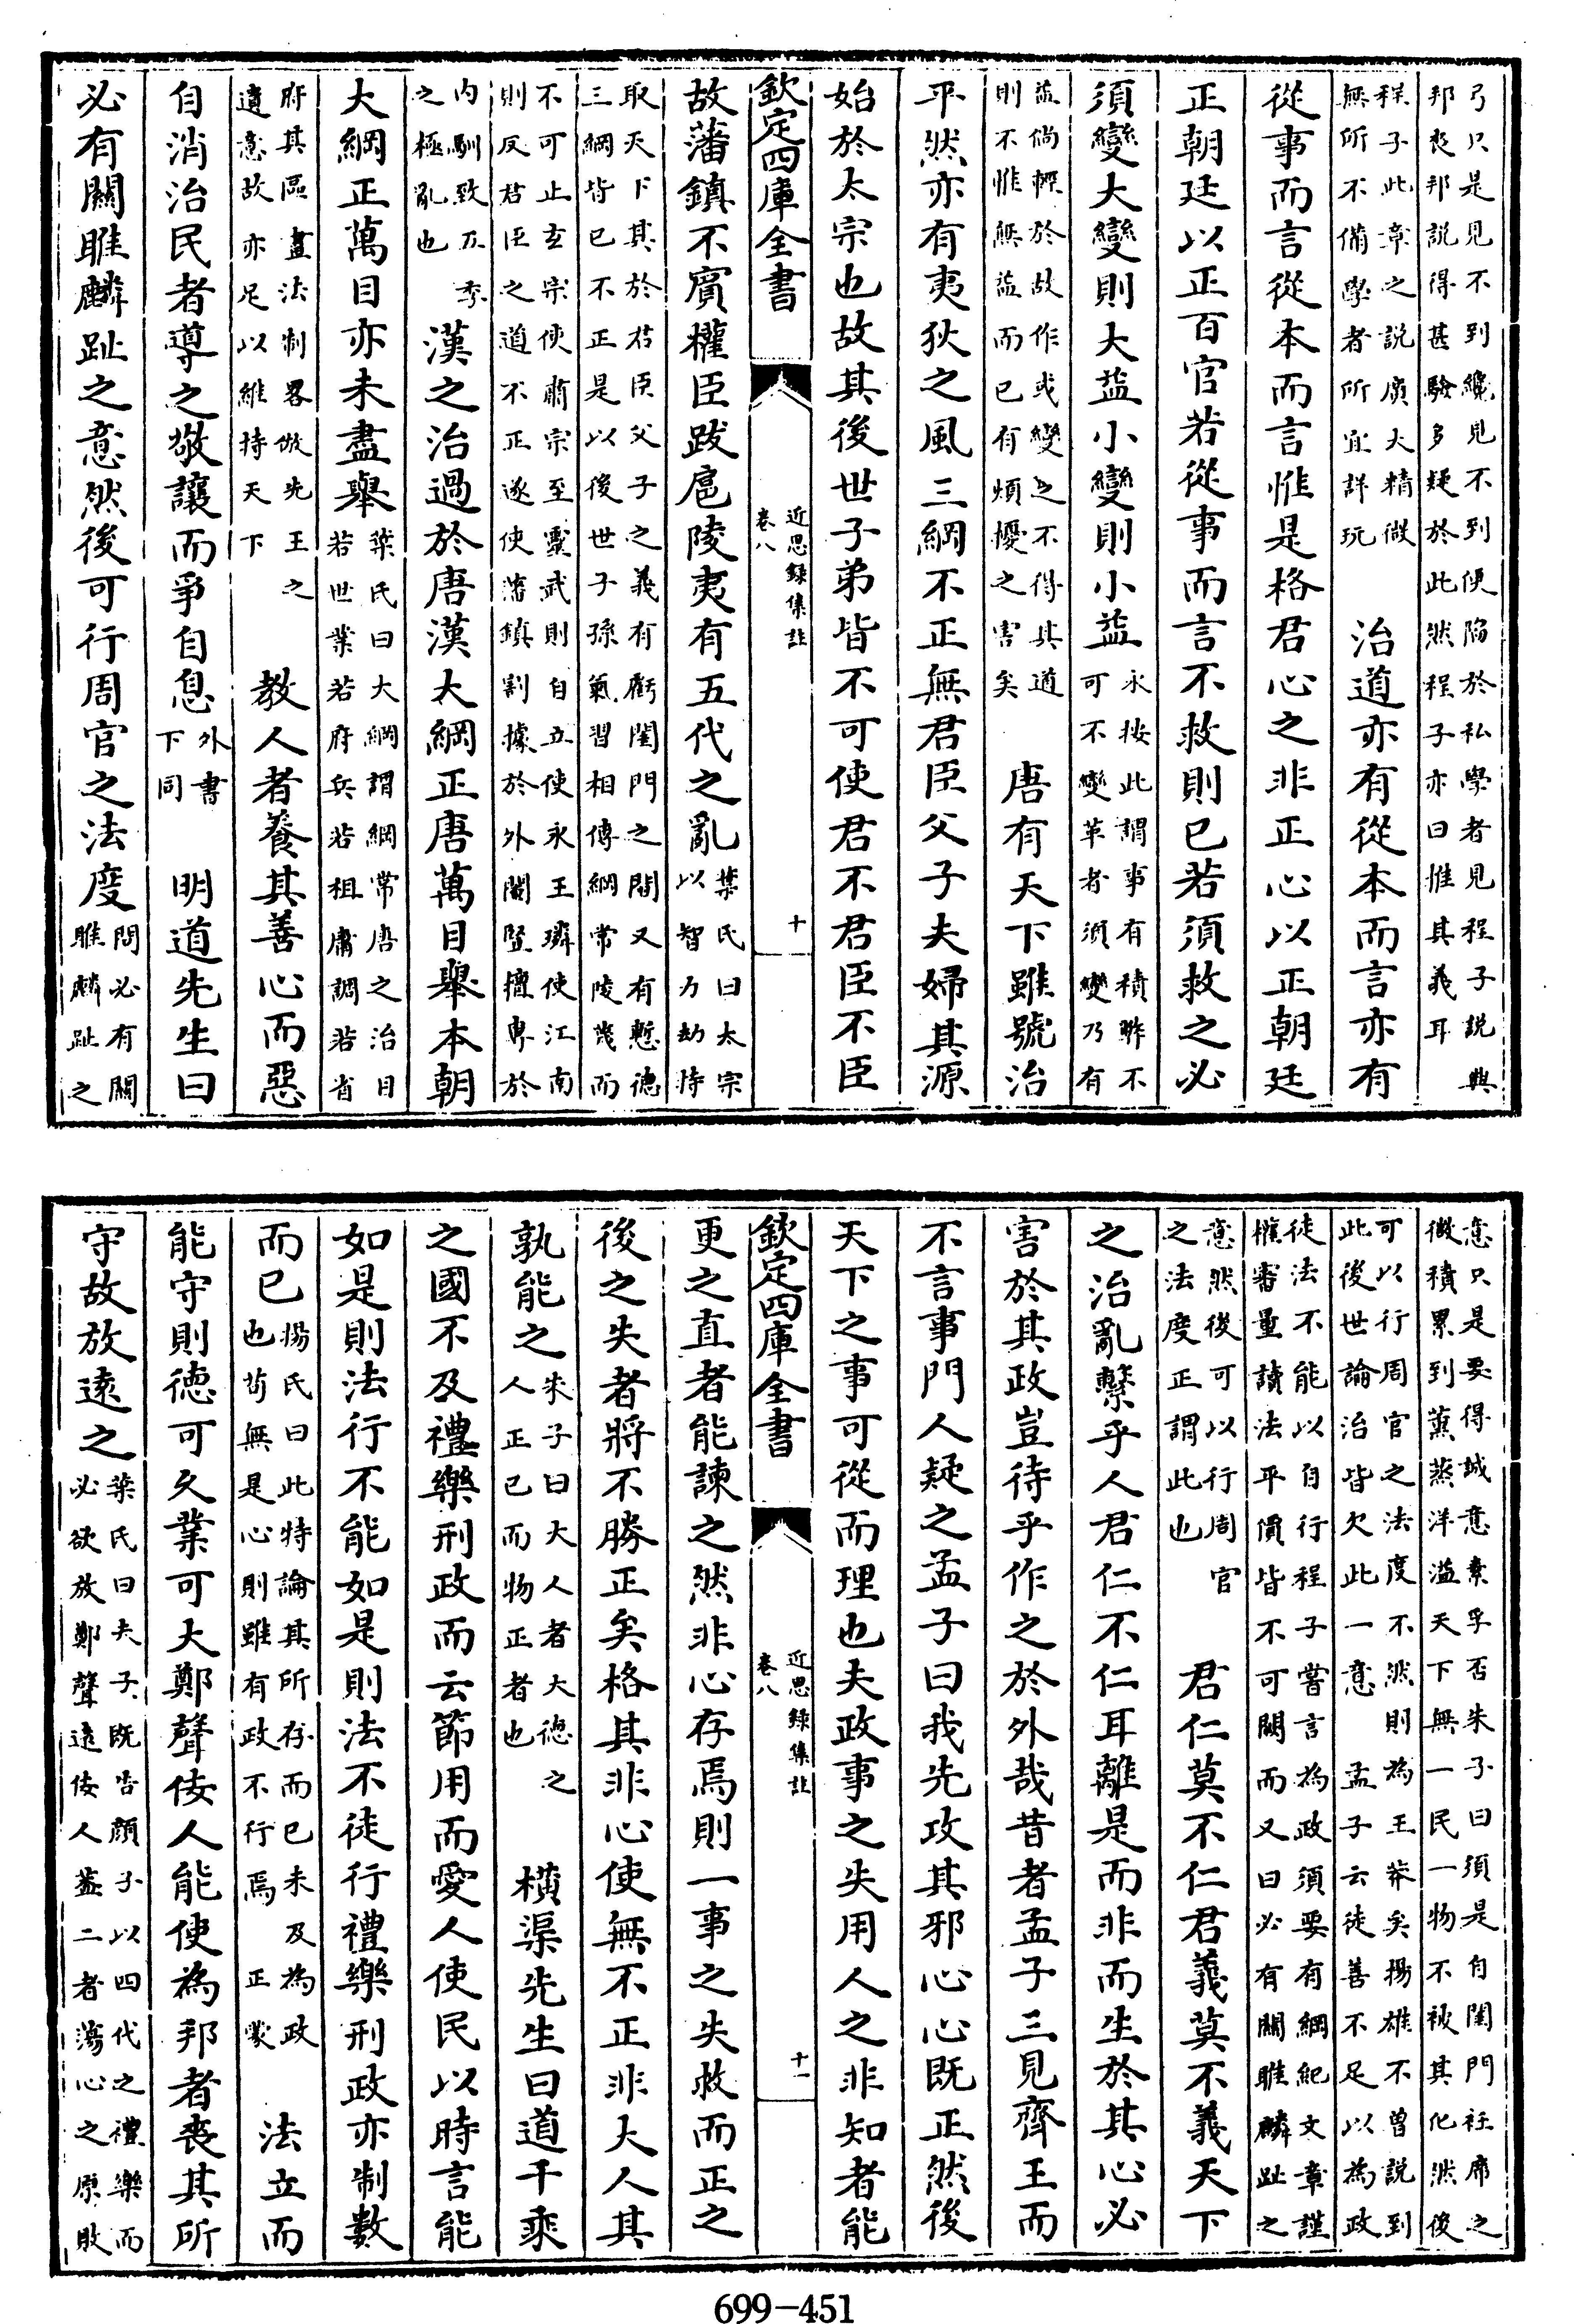 弓只是見不到纔見不到便陷於私學者見程子説興
邦喪邦説得甚驗多疑於此然程子亦曰惟其義耳
程子此章之説廣大精微
無所不備學者所宜詳玩
治道亦有從本而言亦有
從事而言從本而言惟是格君心之非正心以正朝廷
正朝廷以正百官若從事而言不救則已若須救之必
須變大變則大益小變則小益
永按此謂事有積弊不
可不變革者須變乃有
益倘輕於故作或變之不得其道
則不惟無益而已有煩擾之害矣
唐有天下雖號治
平然亦有夷狄之風三綱不正無君臣父子夫婦其源
始於太宗也故其後世子弟皆不可使君不君臣不臣
欽定四庫全書
近思録集註
卷八
十
故藩鎮不賓權臣跋扈陵夷有五代之亂
葉氏曰太宗
以智力劫持
取天下其於君臣父子之義有虧閨門之間又有慙德
三綱皆已不正是以後世子孫氣習相傳綱常陵茂而
不可止玄宗使肅宗至靈武則自立使永王璘使江南
則反君臣之道不正遂使藩鎮割據於外閹竪擅専於
内馴致五季
之極亂也
漢之治過於唐漢大綱正唐萬目舉本朝
大綱正萬目亦未盡舉
葉氏曰大綱謂綱常唐之治目
若世業若府兵若租庸調若省
府其區畫法制畧倣先王之
遺意故亦足以維持天下
教人者養其善心而惡
自消治民者導之敬讓而爭自息
外書
下同
明道先生曰
必有關雎麟趾之意然後可行周官之法度
問必有關
雎麟趾之
意只是要得誠意素孚否朱子曰須是自閨門衽席之
微積累到薫蒸洋溢天下無一民一物不被其化然後
可以行周官之法度不然則為王莽矣揚雄不曾説到
此後世論治皆欠此一意
孟子云徒善不足以為政
徒法不能以自行程子嘗言為政須要有綱紀文章謹
權審量讀法平價皆不可闕而又曰必有關雎麟趾之
意然後可以行周官
之法度正謂此也
君仁莫不仁君義莫不義天下
之治亂繫乎人君仁不仁耳離是而非而生於其心必
害於其政豈待乎作之於外哉昔者孟子三見齊王而
不言事門人疑之孟子曰我先攻其邪心心既正然後
天下之事可從而理也夫政事之失用人之非知者能
欽定四庫全書
近思録集註
卷八
十一
更之直者能諫之然非心存焉則一事之失救而正之
後之失者將不勝正矣格其非心使無不正非大人其
孰能之
朱子曰大人者大德之
人正己而物正者也
横渠先生曰道千乘
之國不及禮樂刑政而云節用而愛人使民以時言能
如是則法行不能如是則法不徒行禮樂刑政亦制數
而已
揚氏曰此特論其所存而已未及為政
也茍無是心則雖有政不行焉
正蒙
法立而
能守則德可久業可大鄭聲佞人能使為邦者喪其所
守故放遠之
葉氏曰夫子既告顔子以四代之禮樂而
必欲放鄭聲遠佞人葢二者蕩心之原敗
699-451